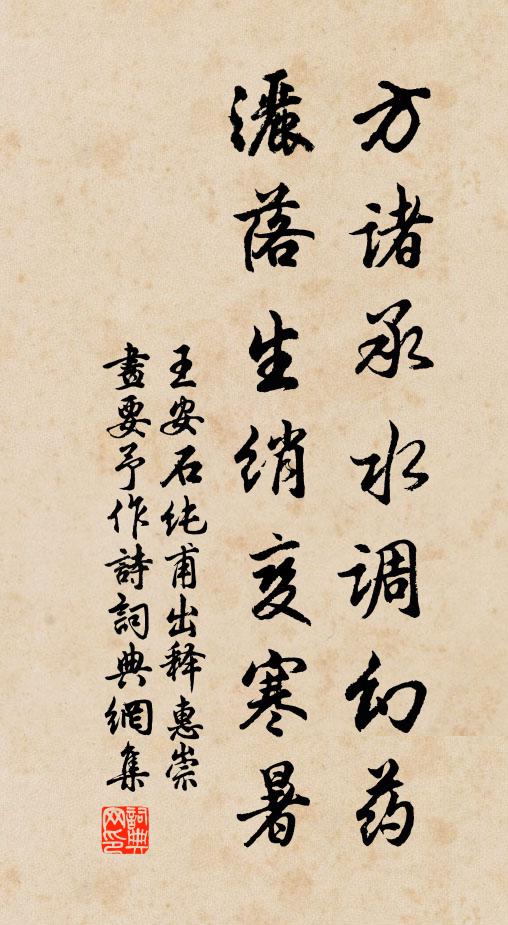 方诸承水调幻药
灑落生绡变寒暑
王安石纯甫出释惠崇
畫要予作詩詞典網集
詞典网印